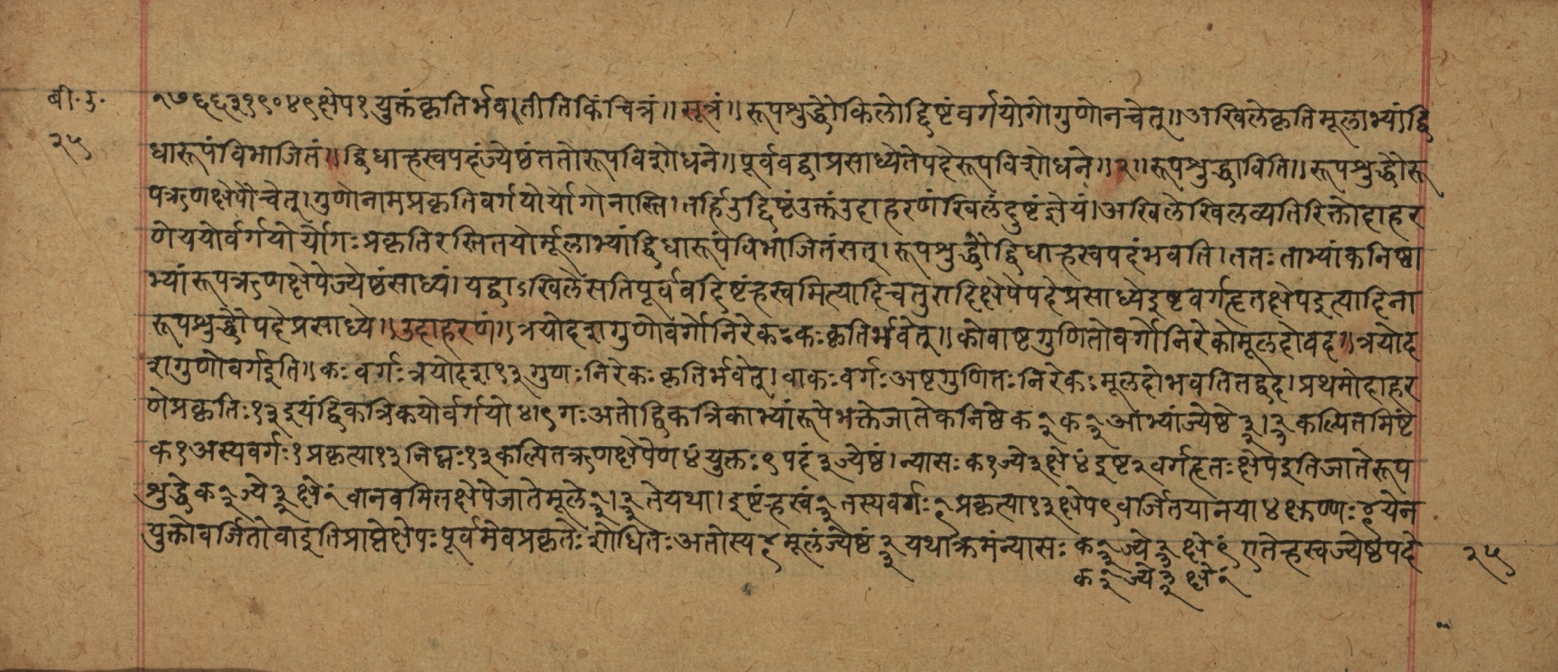 बी॰उ॰ १७६६३१९०४९ क्षेप१ युक्तंकृतिर्भवतीतिकिंचित्रं॥ सूत्रं॥ रूपशुद्धौकिलोद्दिष्टंवर्गयोगोगुणोनचेत्॥ अखिलेकृतिमूलाभ्यांद्वि
२५ धारूपंविभाजितं॥ द्विधाह्रस्वपदंज्येष्ठंततोरूपविशोधने॥ पूर्ववद्वाप्रसाध्येतेपदेरूपविशोधने॥२॥ रूपशुद्धाविति॥ रूपशुद्धौरू
पऋणक्षेपौचेत्। गुणोनामप्रकृतिवर्गयोर्योगोनास्ति। तर्हिउद्दिष्टंउक्तंउदाहरणंखिलंदुष्टंज्ञेयं। अखिलेखिलव्यतिरिक्तोदाहर
णेययोर्वर्गयोर्योगःप्रकृतिरस्तितयोर्मूलाभ्यांद्विधारूपंविभाजितंसत्। रूपशुद्धौद्विधाह्रस्वपदंभवति। ततःताभ्यांकनिष्ठा
भ्यांरूपऋणक्षेपेज्येष्ठंसाध्यं। यद्वाऽखिलेसतिपूर्ववदिष्टंह्रस्वमित्यादिचतुरादिक्षेपेपदेप्रसाध्येइष्टवर्गहृतक्षेपइत्यादिना
रूपशुद्धौपदेप्रसाध्ये॥ उदाहरणं॥ त्रयोदशगुणोवर्गोनिरेकःकःकृतिर्भवेत्॥ कोवाष्टगुणितोवर्गोनिरेकोमूलदोवद॥ त्रयोद
शगुणोवर्गइति॥ कःवर्गःत्रयोदश१३गुणःनिरेकःकृतिर्भवेत्। वाकःवर्गःअष्टगुणितःनिरेकःमूलदोभवतितद्वद। प्रथमोदाहर
णेप्रकृतिः१३इयंद्विकत्रिकयोर्वर्गयो४।९गःअतोद्विकत्रिकाभ्यांरूपेभक्तेजातेकनिष्ठेक १/२ क १/३ आभ्यांज्येष्ठे ३/२। २/३ कल्पितमिष्टं
क१अस्यवर्गः१प्रकृत्या१३निघ्नः१३कल्पितऋणक्षेपेण४ंयुक्तः९पदं३ज्येष्ठं। न्यासःक१ज्ये३क्षे४ंइष्ट२वर्गहृतःक्षेपेइतिजातेरूप
शुद्धेक १/२ ज्ये ३/२ क्षे१ं वानवमितक्षेपेजातेमूले १/३। २/३ तेयथा। इष्टंह्रस्वं १/३ तस्यवर्गः १/९ प्रकृत्या१३क्षेप९वर्जितयानया४
युक्तोवर्जितोवाइतिप्राप्तेक्षेपःपूर्वमेवप्रकृतेःशोधितःअतोस्य ४/९ मूलंज्येष्ठं २/३ यथाक्रमंन्यासः क १/२ ज्ये ३/२ क्षे१ं एतेह्रस्वज्येष्ठेपदे २५
क १/३ ज्ये २/३ क्षे१ं